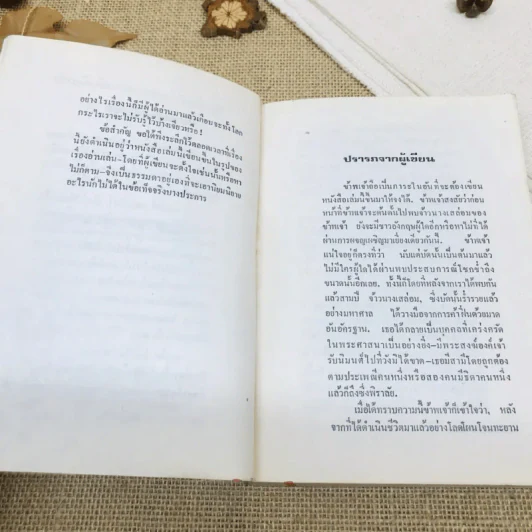 อย่างไรเรื่องนี้ก็มีผู้ได้อ่านมาแล้วเกือบจะทั้งโลก
กระไรเราจะไม่รับรู้ไว้บ้างเจียวหรือ!
ข้อสำคัญ ขอได้พึงระลึกไว้ตลอดเวลาที่เรื่อง
นี้ยังดำเนินอยู่ว่าหนังสือเล่มนี้เขียนขึ้นในรูปของ
เรื่องอ่านเล่น—โดยที่ผู้เขียนจะตั้งใจเช่นนั้นหรือหา
ไม่ก็ตาม—จึงเป็นธรรมดาอยู่เองที่จะเอานิยมนิยาย
อะไรนักไม่ได้ในข้อเท็จจริงบางประการ
ปรารภจากผู้เขียน
ข้าพเจ้าถือเป็นภาระในอันที่จะต้องเขียน
หนังสือเล่มนี้ขึ้นมาให้จงได้ ข้าพเจ้าสงสัยว่าก่อน
หน้าที่ข้าพเจ้าจะค้นดั้นไปพบจ้าวนางเสล่อมของ
ข้าพเจ้า ยังจะมีชาวอังกฤษผู้ใดอีกหรือหาไม่ที่ได้
ผ่านการผจญเผชิญมาเยี่ยงเดียวกันนี้ ข้าพเจ้า
แน่ใจอยู่ก็ตรงที่ว่า นับแต่บัดนั้นเป็นต้นมาแล้ว
ไม่มีใครผู้ใดได้ผ่านพบประสบการณ์โชกช่ำถึง
ขนาดนั้นอีกเลย. ทั้งนี้ก็โดยที่หลังจากเราได้พบกัน
แล้วสามปี จ้าวนางเสล่อม, ซึ่งบัดนั้นร่ำรวยแล้ว
อย่างมหาศาล ได้วางมือจากการค้าฝิ่นด้วยมาด
อันอัครฐาน. เธอได้กลายเป็นบุคคลที่เคร่งครัด
ในพระศาสนาเป็นอย่างยิ่ง—มีพระสงฆ์องค์เจ้า
รับนิมนต์ไปที่วังมิได้ขาด—เธอมีสามีโดยถูกต้อง
ตามประเพณีคนหนึ่งหรือสองคนมีธิดาคนหนึ่ง
แล้วก็ถึงซึ่งพิราลัย.
เมื่อได้ทราบความนี้ข้าพเจ้าก็เข้าใจว่า, หลัง
จากที่ได้ดำเนินชีวิตมาแล้วอย่างโลดโผนโจนทะยาน